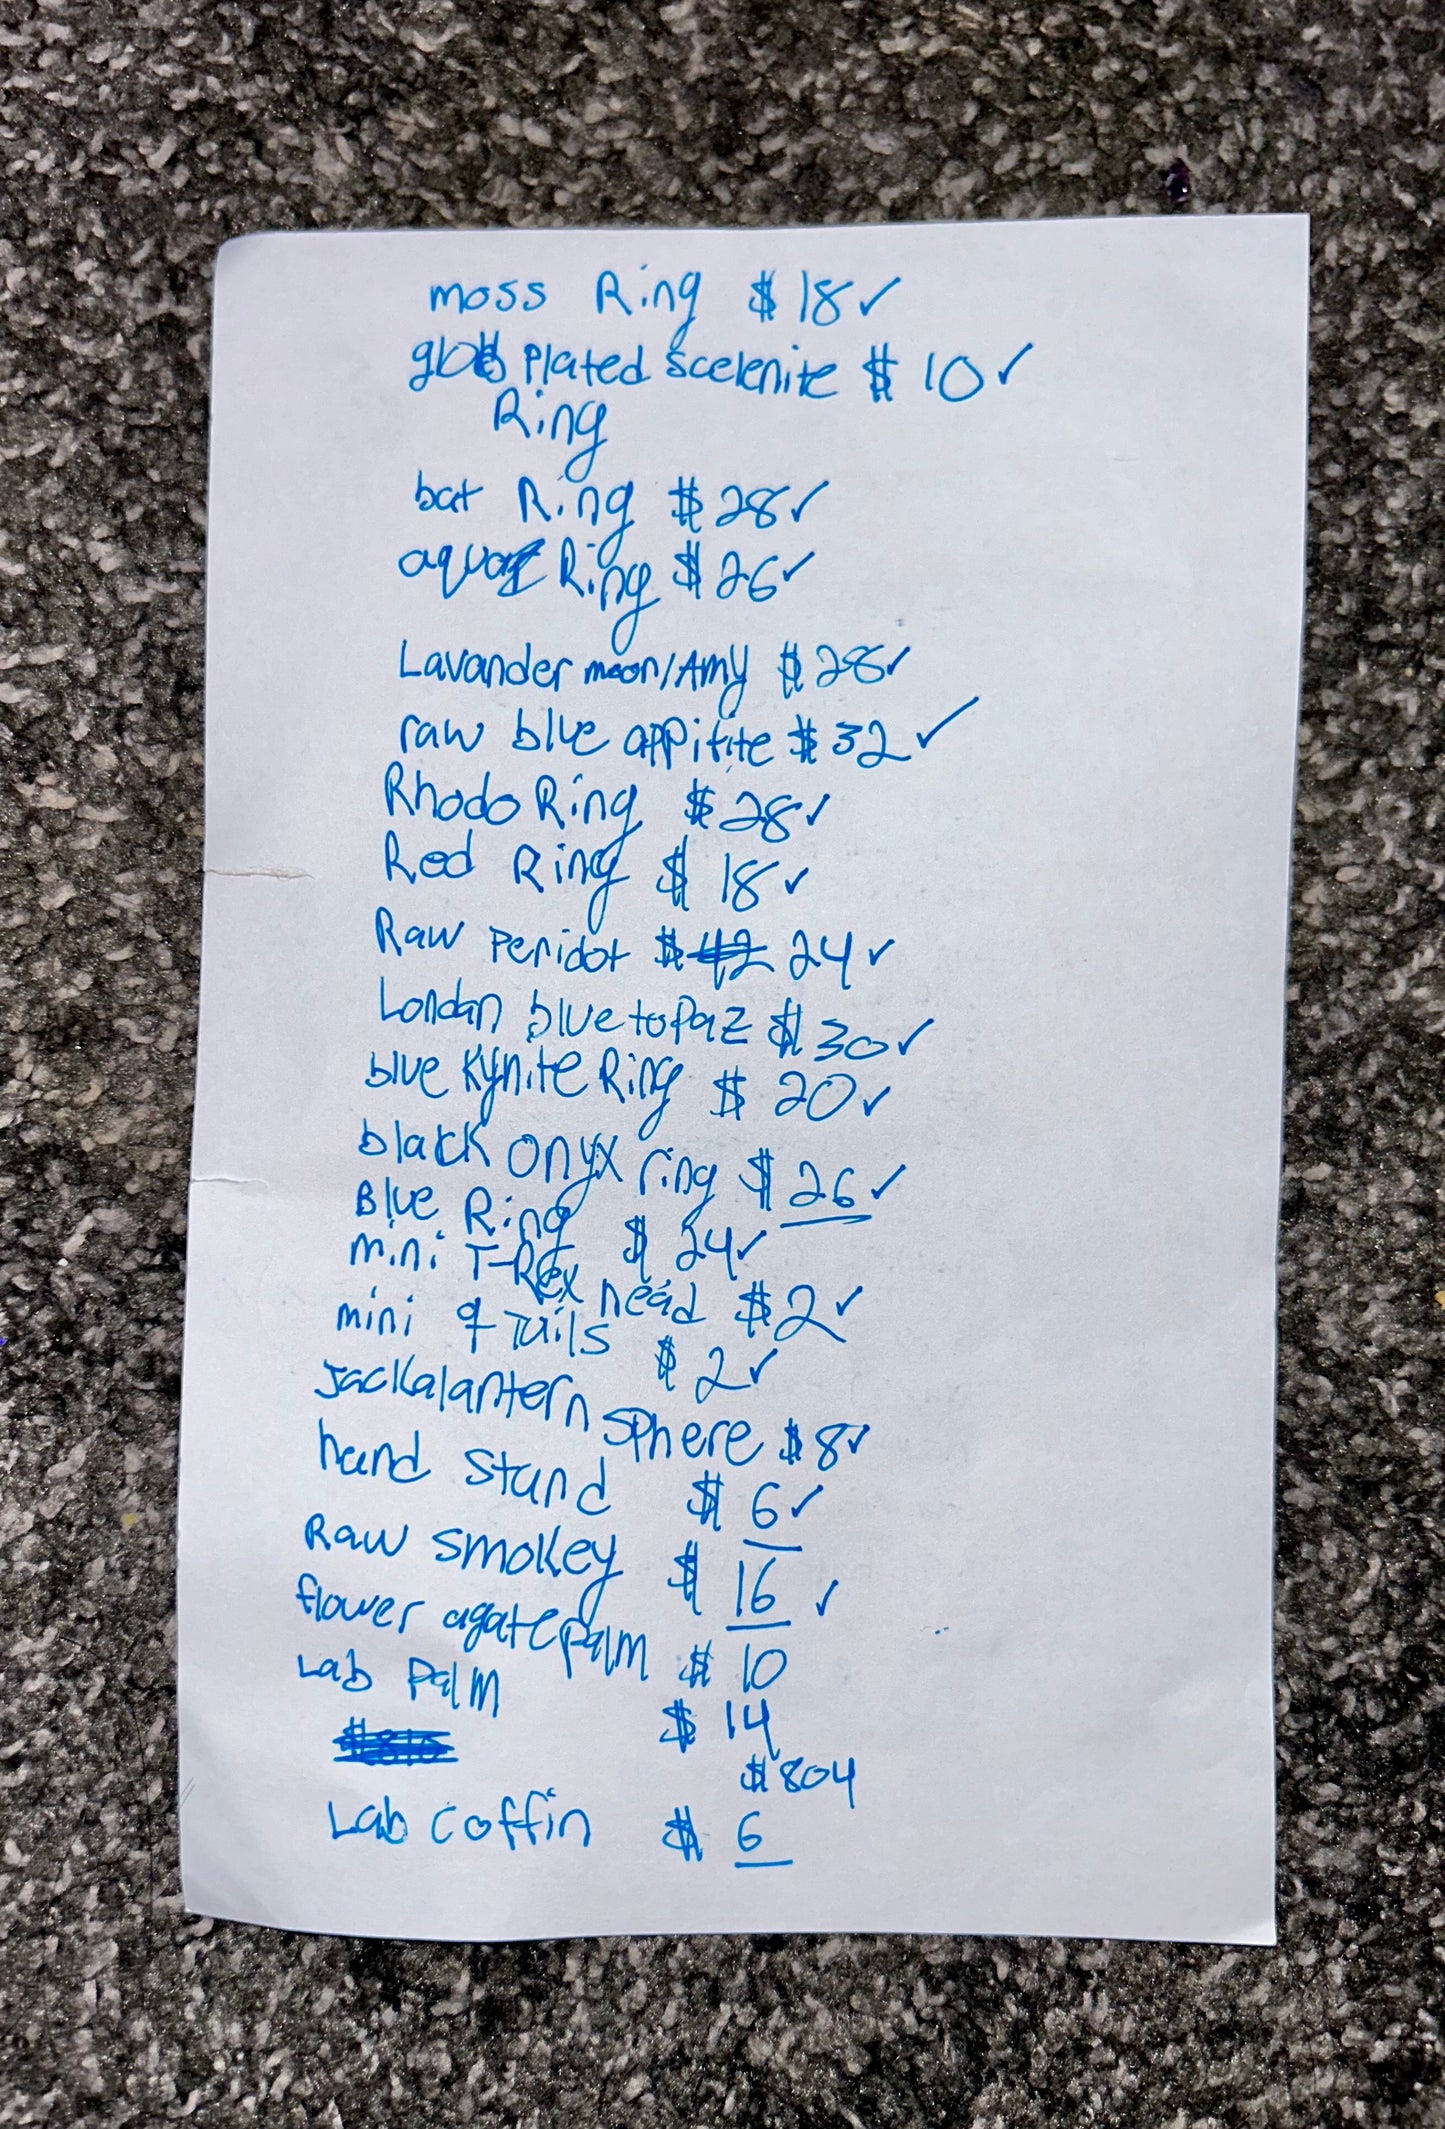 moss Ring $ 18 ✓
Plated scelenite $ 10 ✓
Ring
bat Ring $ 28 ✓
aqua Ring $ 26 ✓
Lavander moon/Amy $ 28 ✓
raw blue appitite $ 32 ✓
Rhodo Ring $ 28 ✓
Red Ring $ 18 ✓
Raw Peridot $ 42 24 ✓
Londan blue topaz $ 30 ✓
blue Kynite Ring $ 20 ✓
black onyx ring $ 26 ✓
Blue Ring $ 24 ✓
mini T-Rex head $ 2 ✓
mini 9 Tails $ 2 ✓
Jackalantern sphere $ 8 ✓
hand stand $ 6 ✓
Raw smokey $ 16 ✓
flower agate palm $ 10
Lab Palm $ 14
$ 804
Lab coffin $ 6